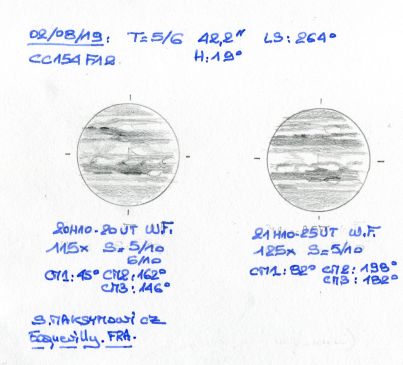 02/08/19: T=5/6 42,2" LS: 264°
CC154 F12 H:19°
20H10-20UT W.F.
115x S=5/10
6/10
CM1: 45° CM2: 162°
CM3: 146°
21H10-25UT W.F
125x S=5/10
CM1: 82° CM2: 198°
CM3: 182°
S.MAKSYMOWICZ
Ecquevilly. FRA.